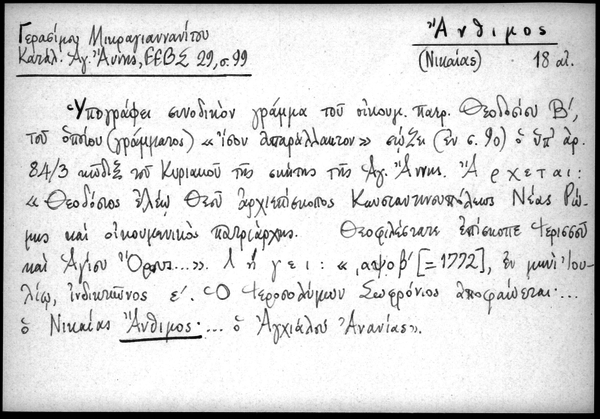 Γερασίμου Μικραγιαννανίτου
Κατάλ. Ἁγ. Ἄννης, ΕΕΒΣ 29, σ. 99
Ἄνθιμος
(Νικαίας) 18 αἰ.
Ὑπογράφει συνοδικὸν γράμμα τοῦ οἰκουμ. πατρ. Θεοδοσίου Β΄,
τοῦ ὁποίου (γράμματος) «ἴσον ἀπαράλλακτον» σώζει (ἐν σ. 90) ὁ ὑπ' ἀρ.
84/3 κῶδιξ τοῦ Κυριακοῦ τῆς σκήτης τῆς Ἁγ. Ἄννης. Ἄρχεται:
«Θεοδόσιος ἐλέῳ Θεοῦ ἀρχιεπίσκοπος Κωνσταντινουπόλεως Νέας Ῥώ-
μης καὶ οἰκουμενικὸς πατριάρχης. Θεοφιλέστατε ἐπίσκοπε Ἱερισσοῦ
καὶ Ἁγίου Ὄρους...». Λήγει: «͵αψοβ΄ [=1772], ἐν μηνὶ Ἰου-
λίῳ, ἰνδικτιῶνος ε΄. Ὁ Ἱεροσολύμων Σωφρόνιος ἀποφαίνεται·...
ὁ Νικαίας Ἄνθιμος·... ὁ Ἀγχιάλου Ἀνανίας».